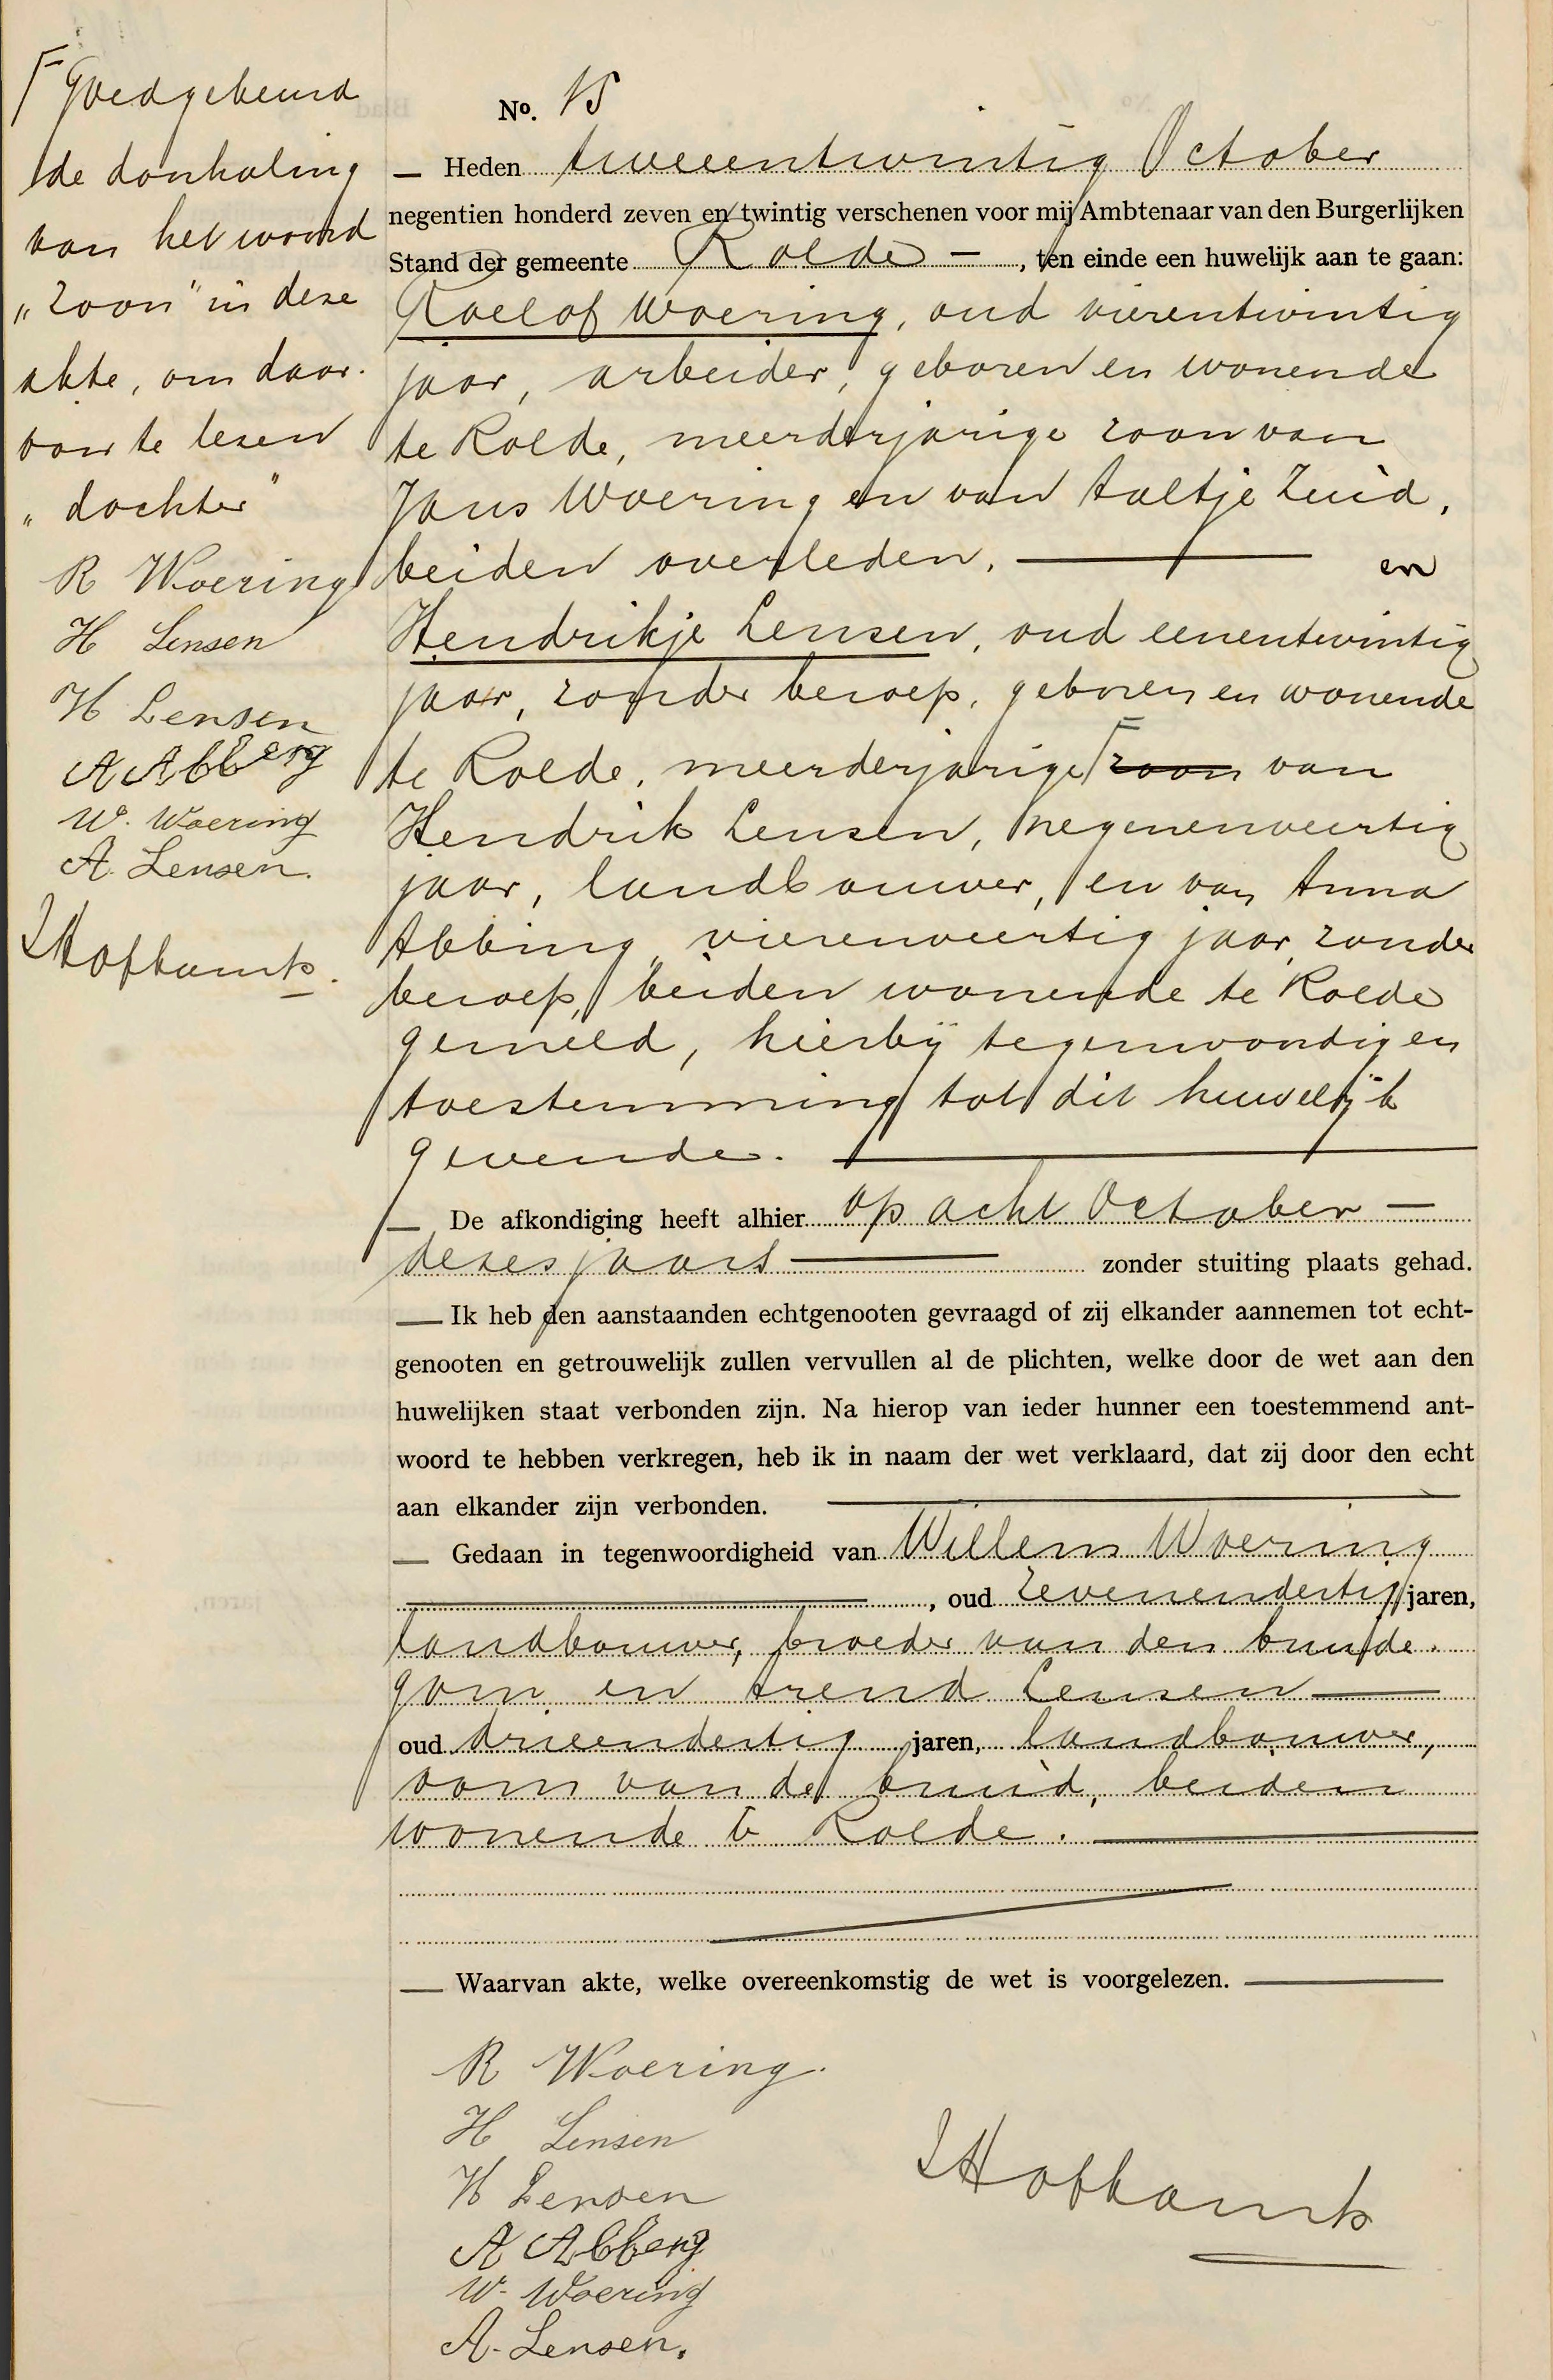 Goedgekeurd
de doorhaling
van het woord
„zoon" in deze
akte, om daar-
voor te lezen
„dochter"
R Woering
H Lensen
H Lensen
A Abbeng
W. Woering
A. Lensen.
No. 15
— Heden tweeentwintig October
negentien honderd zeven en twintig verschenen voor mij Ambtenaar van den Burgerlijken
Stand der gemeente Rolde —, ten einde een huwelijk aan te gaan:
Roelof Woering, oud vierentwintig
jaar, arbeider, geboren en wonende
te Rolde, meerderjarige zoon van
Jans Woering en van Aaltje Zuid,
beiden overleden. — en
Hendrikje Lensen, oud eenentwintig
jaar, zonder beroep, geboren en wonende
te Rolde, meerderjarige zoon van
Hendrik Lensen, negenenveertig
jaar, landbouwer, en van Anna
Abbing, vierenveertig jaar, zonder
beroep, beiden wonende te Rolde
gemeld, hierbij tegenwoordig en
toestemming tot dit huwelijk
gevende. —
— De afkondiging heeft alhier op acht October —
dezes jaars — zonder stuiting plaats gehad.
— Ik heb den aanstaanden echtgenooten gevraagd of zij elkander aannemen tot echt-
genooten en getrouwelijk zullen vervullen al de plichten, welke door de wet aan den
huwelijken staat verbonden zijn. Na hierop van ieder hunner een toestemmend ant-
woord te hebben verkregen, heb ik in naam der wet verklaard, dat zij door den echt
aan elkander zijn verbonden. —
— Gedaan in tegenwoordigheid van Willem Woering
—, oud zevenendertig jaren,
landbouwer, broeder van den bruide-
gom en Arend Lensen —
oud drieendertig jaren, landbouwer,
oom van de bruid, beiden
wonende te Rolde. —
— Waarvan akte, welke overeenkomstig de wet is voorgelezen. —
R Woering.
H Lensen
H Lensen
A Abbeng
W. Woering
A. Lensen.